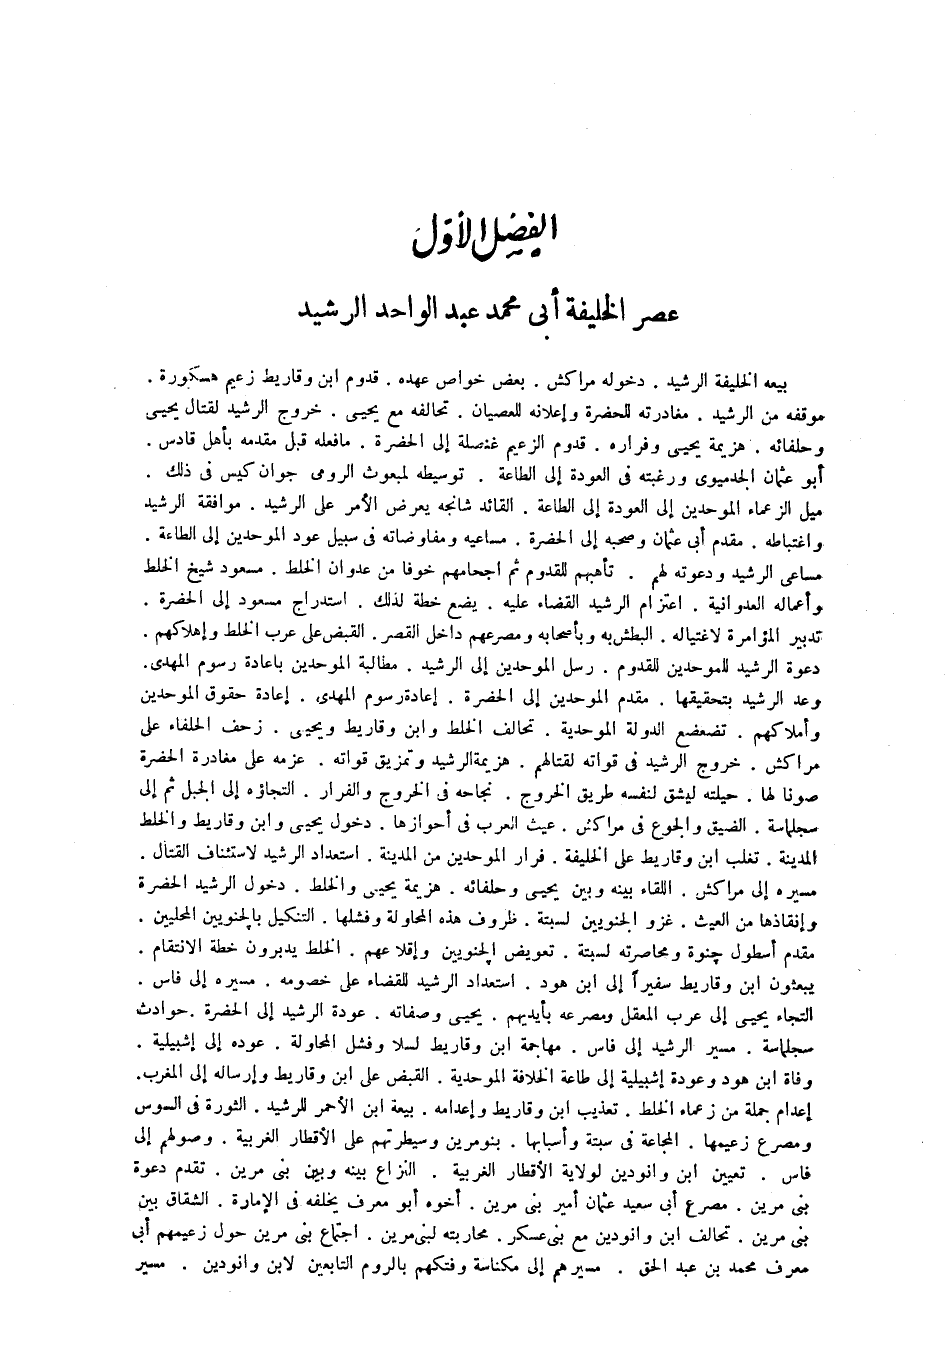 الفصل الأول
عصر الخليفة أبى محمد عبد الواحد الرشيد
بيعه الخليفة الرشيد . دخوله مراكش . بعض خواص عهده . قدوم ابن وقاريط زعيم هسكورة .
موقفه من الرشيد . مغادرته للحضرة وإعلانه للعصيان . تحالفه مع يحيى . خروج الرشيد لقتال يحيى
وحلفائه . هزيمة يحيى وفراره . قدوم الزعيم غنصلة إلى الحضرة . مافعله قبل مقدمه بأهل قادس .
أبو عثمان الجدميوى ورغبته فى العودة إلى الطاعة . توسيطه لمبعوث الرومى جوان كيس فى ذلك .
ميل الزعماء الموحدين إلى العودة إلى الطاعة . القائد شانجه يعرض الأمر على الرشيد . موافقة الرشيد
واغتباطه . مقدم أبى عثمان وصحبه إلى الحضرة . مساعيه ومفاوضاته فى سبيل عود الموحدين إلى الطاعة .
مساعى الرشيد ودعوته لهم . تأهبهم للقدوم ثم احجامهم خوفا من عدوان الخلط . مسعود شيخ الخلط
وأعماله العدوانية . اعتزام الرشيد القضاء عليه . يضع خطة لذلك . استدراج مسعود إلى الحضرة .
تدبير المؤامرة لاغتياله . البطش به وبأصحابه ومصرعهم داخل القصر . القبض على عرب الخلط وإهلاكهم .
دعوة الرشيد للموحدين للقدوم . رسل الموحدين إلى الرشيد . مطالبة الموحدين باعادة رسوم المهدى.
وعد الرشيد بتحقيقها . مقدم الموحدين إلى الحضرة . إعادة رسوم المهدى . إعادة حقوق الموحدين
وأملاكهم . تضعضع الدولة الموحدية . تحالف الخلط وابن وقاريط ويحيى . زحف الحلفاء على
مراكش . خروج الرشيد فى قواته لقتالهم . هزيمة الرشيد وتمزيق قواته . عزمه على مغادرة الحضرة
صونا لها . حيلته ليشق لنفسه طريق الخروج . نجاحه فى الخروج والفرار . التجاؤه إلى الجبل ثم إلى
سجلماسة . الضيق والجوع فى مراكش . عيث العرب فى أحوازها . دخول يحيى وابن وقاريط والخلط
المدينة . تغلب ابن وقاريط على الخليفة . فرار الموحدين من المدينة . استعداد الرشيد لاستئناف القتال .
مسيره إلى مراكش . اللقاء بينه وبين يحيى وحلفائه . هزيمة يحيى والخلط . دخول الرشيد الحضرة
وإنقاذها من العيث . غزو الجنويين لسبتة . ظروف هذه المحاولة وفشلها . التنكيل بالجنويين المحليين .
مقدم أسطول چنوة ومحاصرته لسبتة . تعويض الجنويين وإقلاعهم . الخلط يدبرون خطة الانتقام .
يبعثون ابن وقاريط سفيراً إلى ابن هود . استعداد الرشيد للقضاء على خصومه . مسيره إلى فاس .
التجاء يحيى إلى عرب المعقل ومصرعه بأيديهم . يحيى وصفاته . عودة الرشيد إلى الحضرة . حوادث
سجلماسة . مسير الرشيد إلى فاس . مهاجمة ابن وقاريط لسلا وفشل المحاولة . عوده إلى إشبيلية .
وفاة ابن هود وعودة إشبيلية إلى طاعة الخلافة الموحدية . القبض على ابن وقاريط وإرساله إلى المغرب.
إعدام جملة من زعماء الخلط . تعذيب ابن وقاريط وإعدامه . بيعة ابن الأحمر للرشيد . الثورة فى السوس
ومصرع زعيمها . المجاعة فى سبتة وأسبابها . بنومرين وسيطرتهم على الأقطار الغربية . وصولهم إلى
فاس . تعيين ابن وانودين لولاية الأقطار الغربية . النزاع بينه وبين بنى مرين . تقدم دعوة
بنى مرين . مصرع أبى سعيد عثمان أمير بنى مرين . أخوه أبو معرف يخلفه فى الإمارة . الشقاق بين
بنى مرين . تحالف ابن وانودين مع بنى عسكر . محاربته لبنى مرين . اجتماع بنى مرين حول زعيمهم أبى
معرف محمد بن عبد الحق . مسيرهم إلى مكناسة وفتكهم بالروم التابعين لابن وانودين . مسير